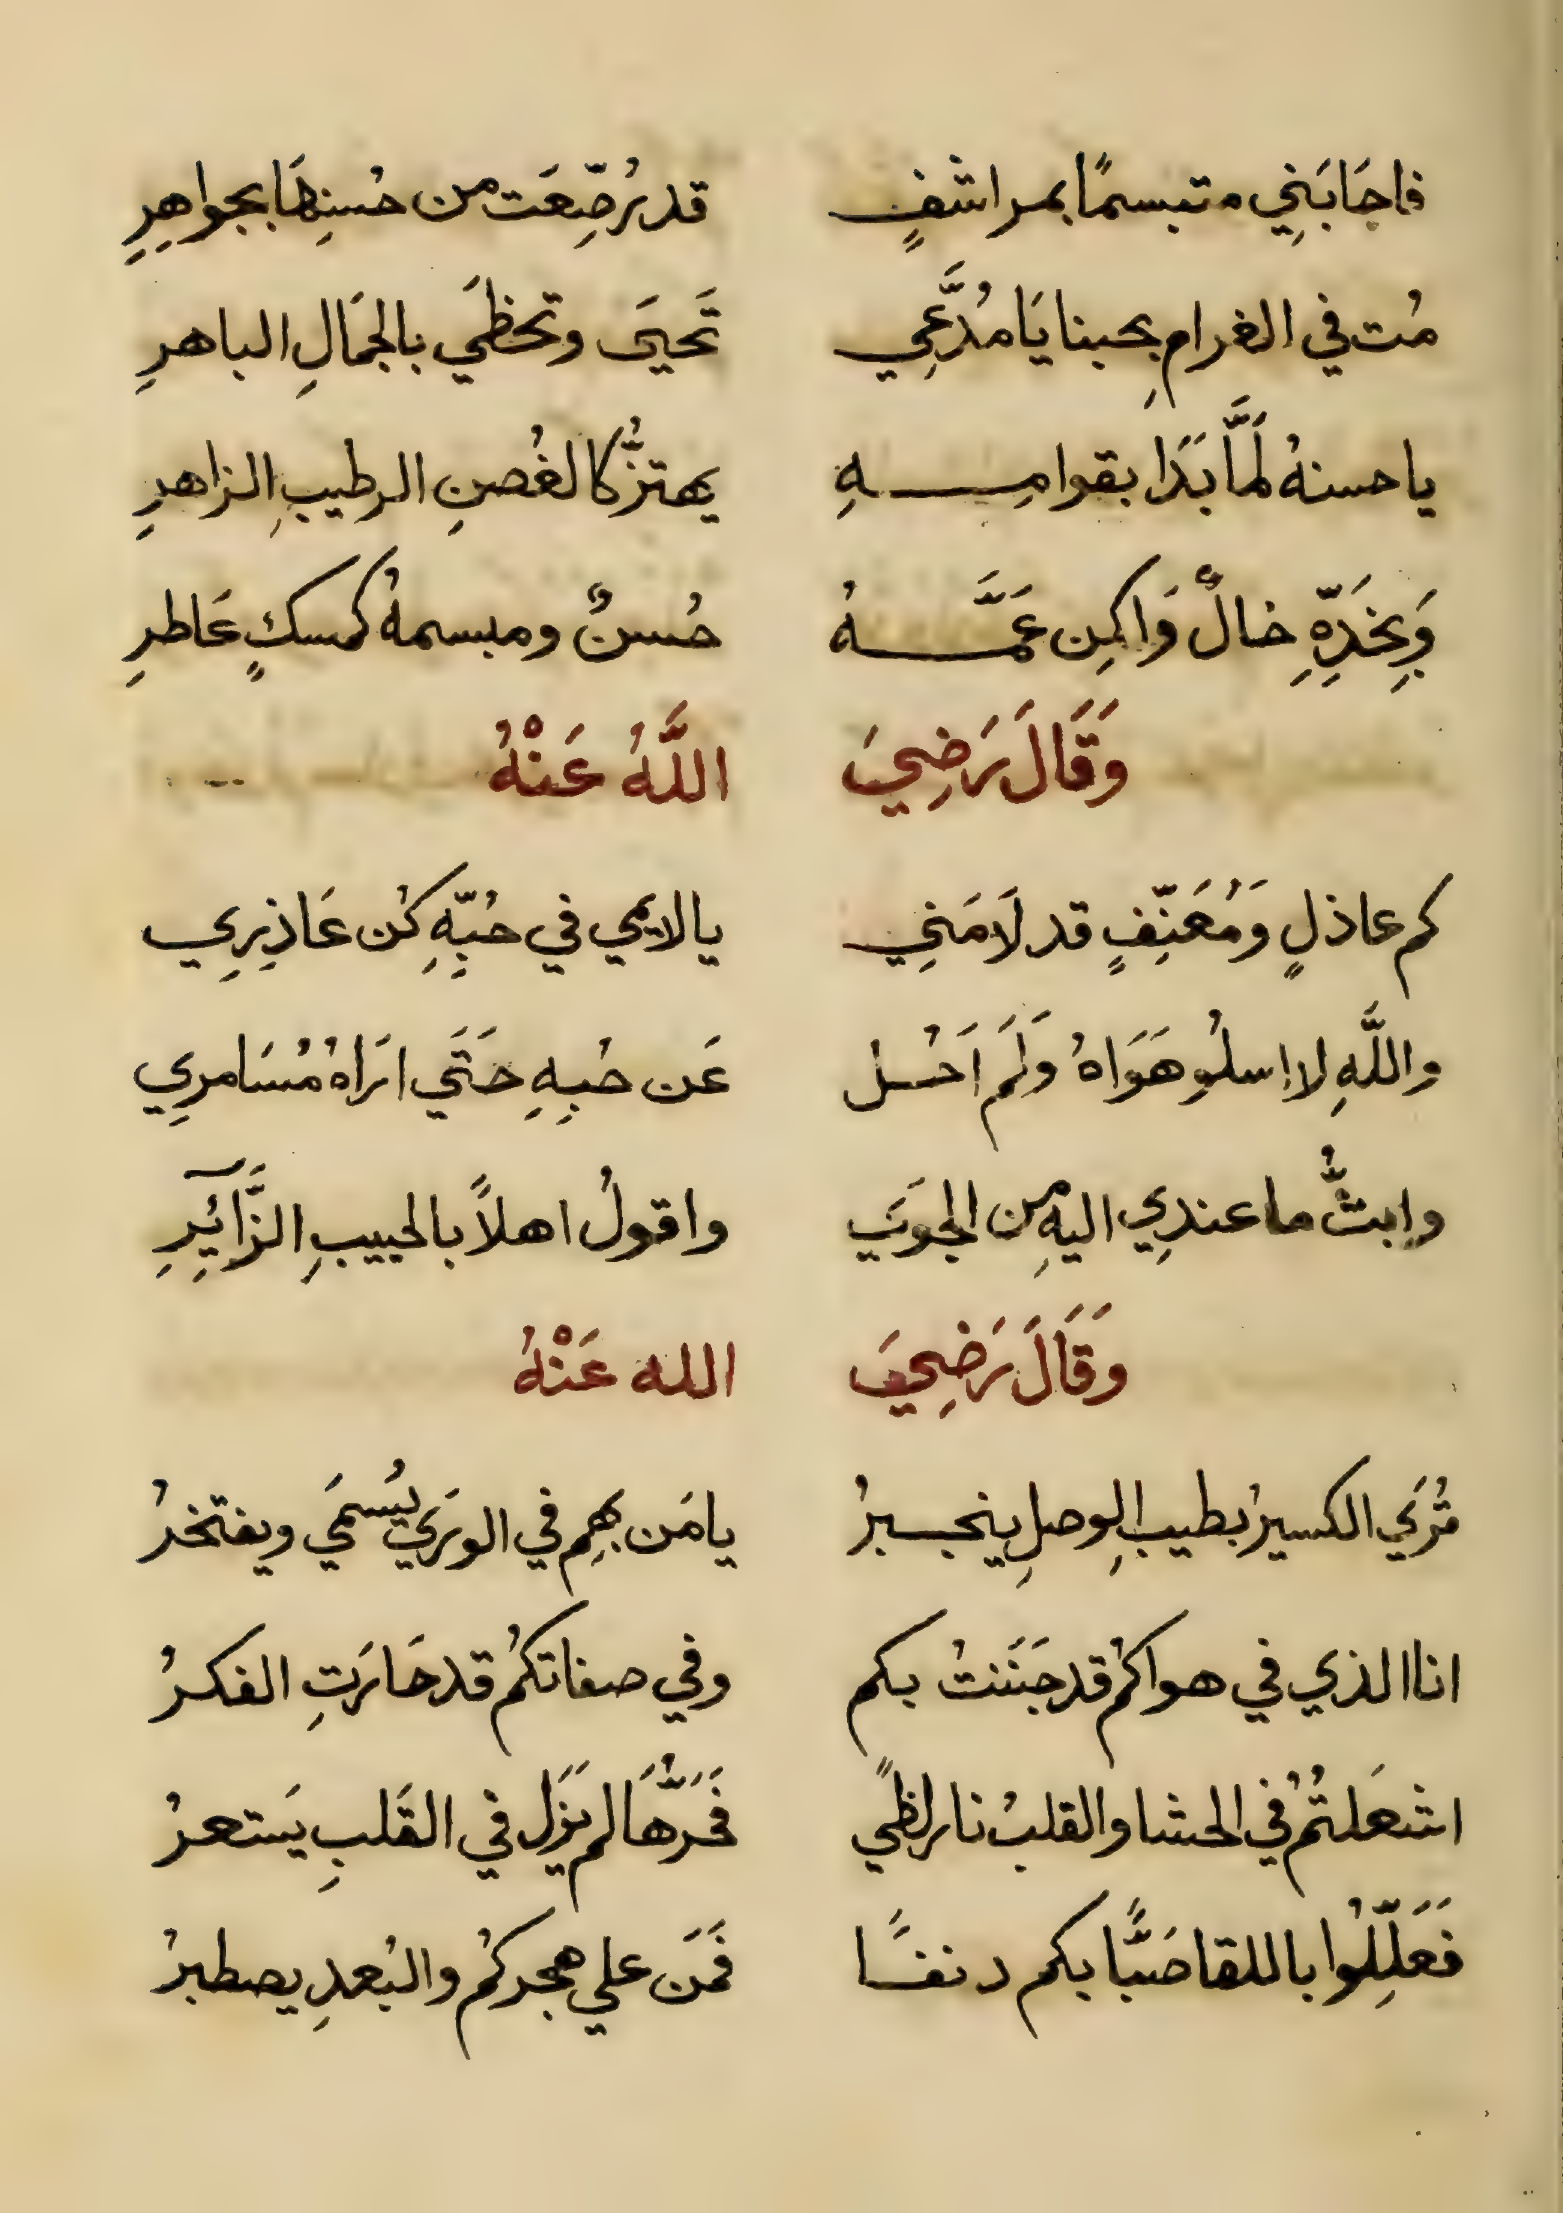 فاجَابَنِي متبسمًا بمراشفٍ قد رُصِّعَت من حُسنِهَا بجواهرِ
مُت في الغرامِ بحبنا يَا مُدَّعِي تَحيَى وتحظَي بالجمَالِ الباهرِ
يا حسنهُ لَمَّا بَدَا بقوامِهِ يهتزُّ كالغُصنِ الرطيبِ الزاهرِ
وَبِخَدِّهِ خالٌ وَاكِن عَمَّهُ حُسنٌ ومبسمهُ كمسكٍ عَاطرِ
وَقَالَ رَضِيَ اللَّهُ عَنْهُ
كم عاذلٍ وَمُعَنِّفٍ قد لَامَنِي يا لايمي في حُبِّهِ كُن عَاذِرِي
واللَّهِ لا اسلُو هَوَاهُ وَلَم اَحُل عَن حُبِهِ حَتَي ارَاهُ مُسَامرِي
وابثُّ ما عندِي اليهِ من الجوَي واقولُ اهلاً بالحبيبِ الزَّآئِرِ
وَقَالَ رَضِيَ الله عَنْهُ
تُرَي الكسيرُ بطيبِ الوصلِ ينجبرُ يا مَن بهِم في الورَي يُسمَي ويفتخرُ
انا الذي في هواكُم قد جَنَنتُ بكم وفي صفاتكُم قد حَارَتِ الفكرُ
اشعَلتُمُ في الحشا والقلبُ نار لظيً فَحَرُّهَا لم يَزَل في القَلبِ يَستعرُ
فَعَلِّلُوا باللقا صَبًّا بكم دنفًا فَمَن علي هجركُم والبُعدِ يصطبرُ